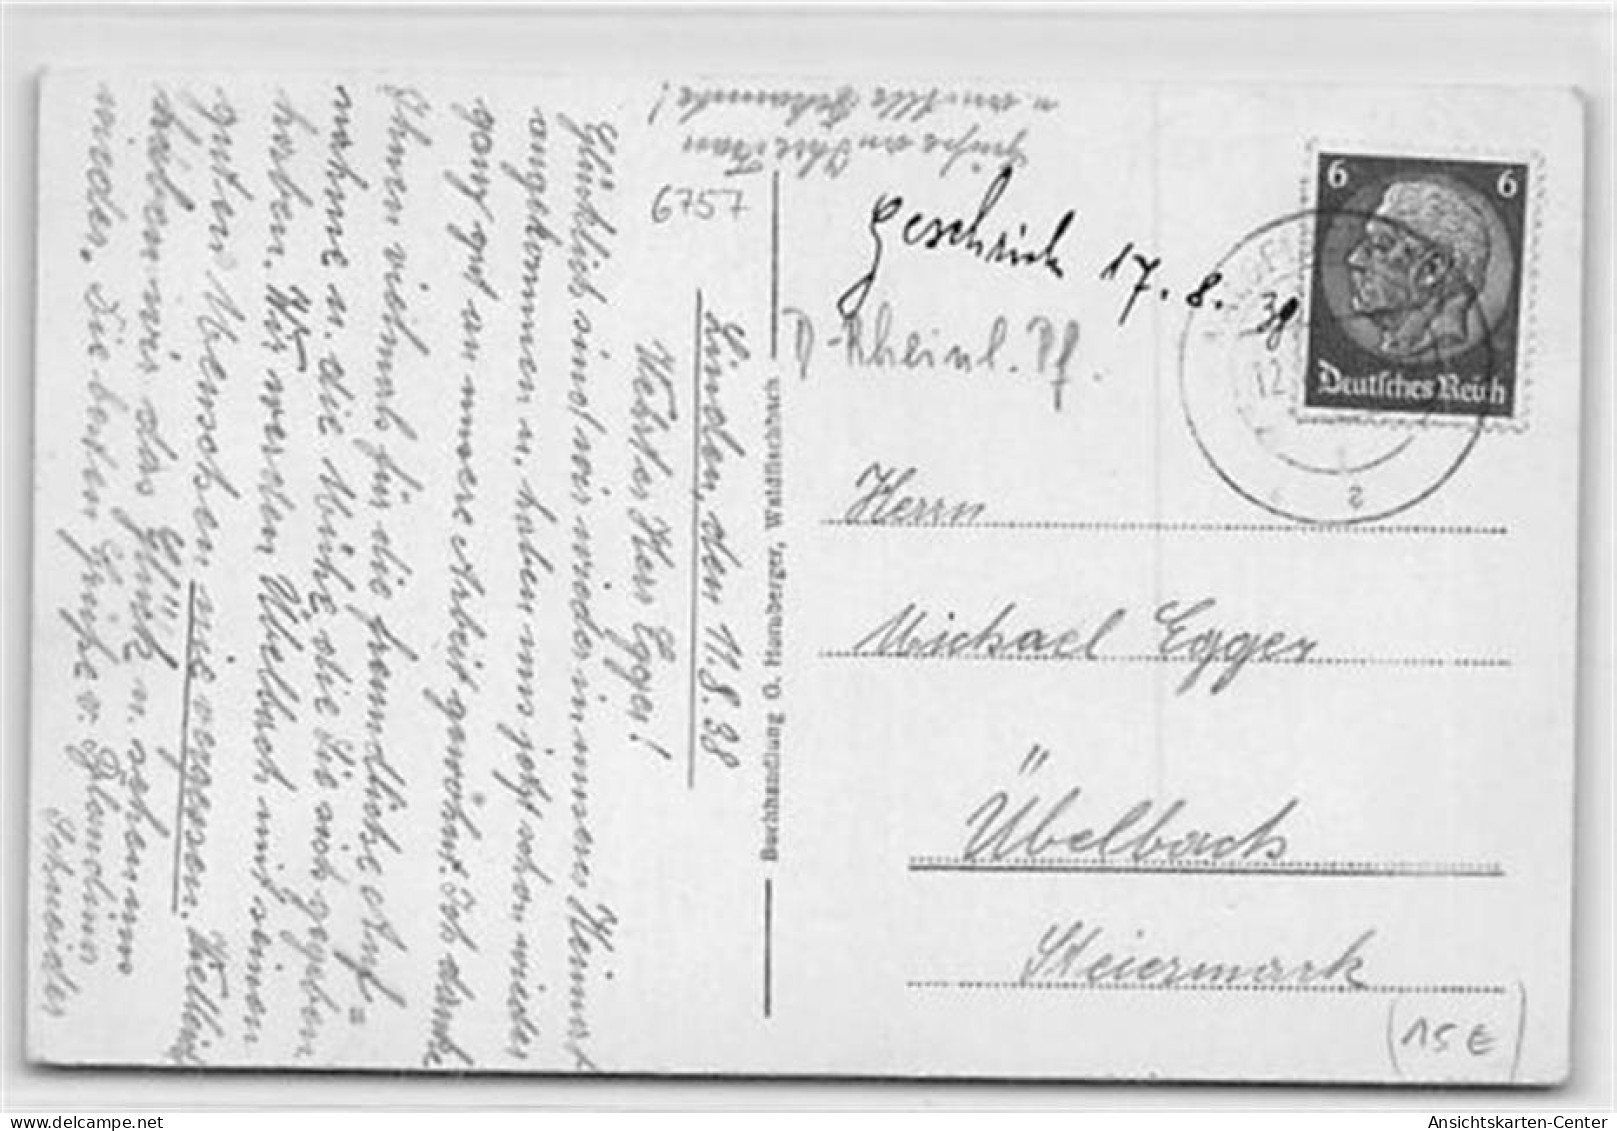 Linden, den 11.8.38
Werter Herr Egger!
Glücklich sind wir wieder in unserer Heimat
angekommen u. haben uns jetzt schon wieder
ganz gut an unsere Arbeit gewöhnt. Ich danke
Ihnen vielmals für die freundliche Auf=
nahme u. die Mühe, die Sie sich gegeben
haben. Wir werden Übelbach mit seinen
guten Menschen nie vergessen. Vielleicht
haben wir das Glück u. sehen uns
wieder. Die besten Grüße v.
Schneider
Grüße an Ihre Frau
u. an alle Bekannte!
6757
Buchhandlung O. Hornberger, Waldfischbach
geschrieb 17.8.38
D-Rheinl. Pf.
6 6
Deutsches Reich
12
a
Herrn
Michael Egger
Übelbach
Steiermark
(15 €)
delcampe.net
Ansichtskarten-Center